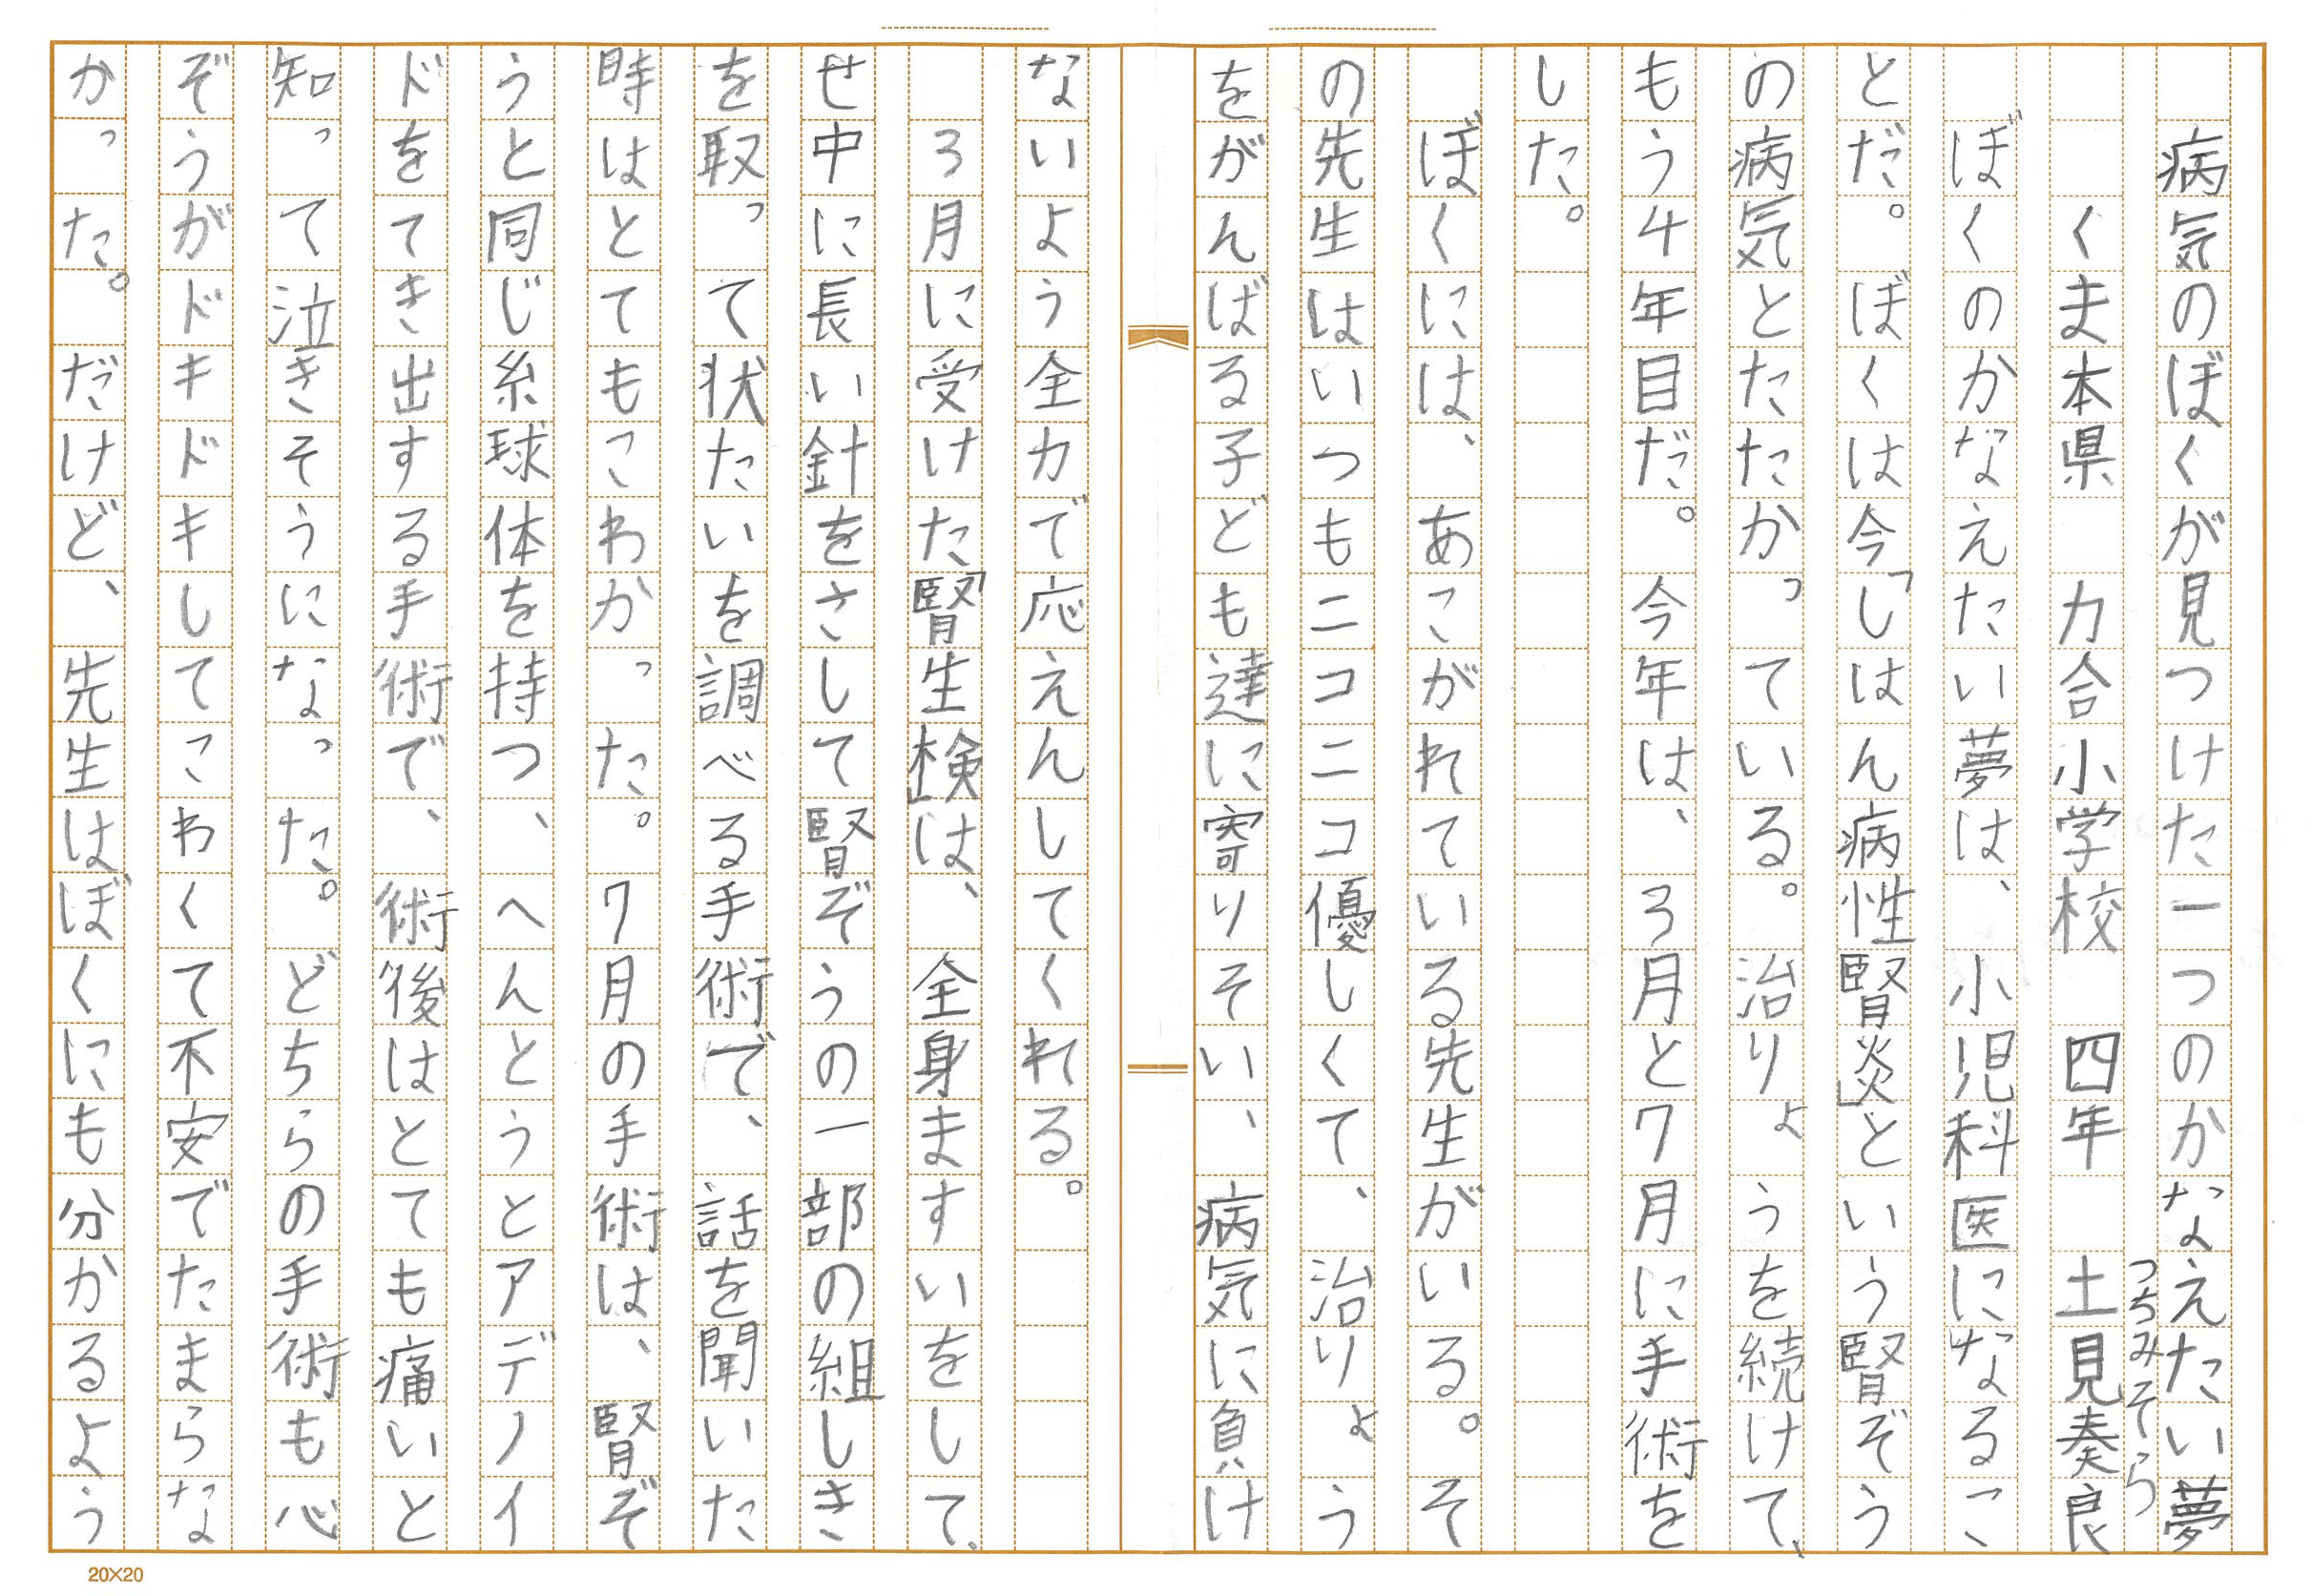 病気のぼくが見つけた一つのかなえたい夢
くま本県 力合小学校 四年 土見奏良
つちみそら
ぼくのかなえたい夢は、小児科医になるこ
とだ。ぼくは今「しはん病性腎炎」という腎ぞう
の病気とたたかっている。治りょうを続けて、
もう4年目だ。今年は、3月と7月に手術を
した。
ぼくには、あこがれている先生がいる。そ
の先生はいつもニコニコ優しくて、治りょう
をがんばる子ども達に寄りそい、病気に負け
ないよう全力で応えんしてくれる。
3月に受けた「腎生検」は、全身ますいをして、
せ中に長い針をさして腎ぞうの一部の組しき
を取って状たいを調べる手術で、話を聞いた
時はとてもこわかった。7月の手術は、腎ぞ
うと同じ糸球体を持つ、へんとうとアデノイ
ドをてき出する手術で、術後はとても痛いと
知って泣きそうになった。どちらの手術も心
ぞうがドキドキしてこわくて不安でたまらな
かった。だけど、先生はぼくにも分かるよう
20×20